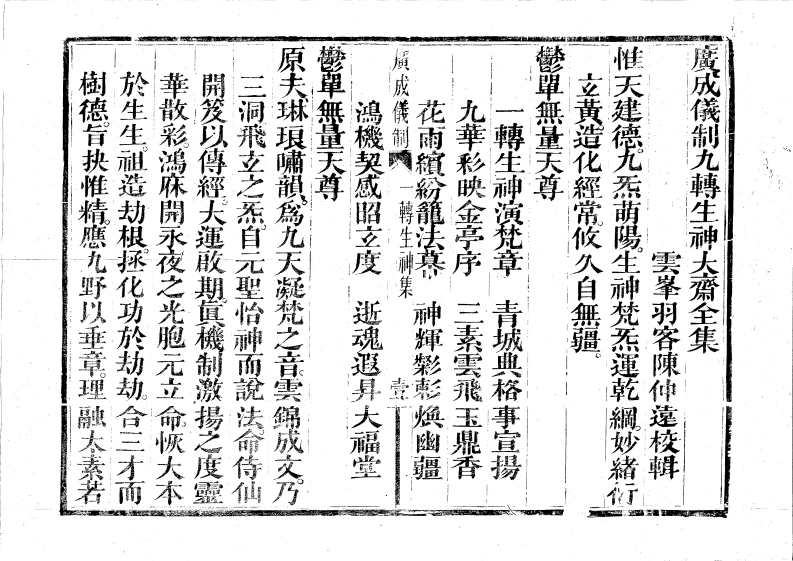 廣成儀制九轉生神大齋全集
雲峯羽客陳仲遠校輯
惟天建德。九炁萌陽。生神梵炁運乾綱。妙緒衍
立黃造化經常。攸久自無疆。
鬱單無量天尊
一轉生神演梵章　青城典格事宣揚
九華彩映金亭序　三素雲飛玉鼎香
花雨繽紛籠法幕　神輝燦彩煥幽疆
鴻機契感昭立度　逝魂遐昇大福堂
廣成儀制　一轉生神集　壹
鬱單無量天尊
原夫琳琅嘯韻。為九天凝梵之音。雲錦成文。乃
三洞飛玄之炁。自元聖怡神而說法。命侍仙
開笈以傳經。大運啟期。眞機制激揚之度。靈
華散彩。鴻庥開永夜之光。胞元立命。恢大本
於生生。祖造劫根。拯化功於劫劫。合三才而
樹德。旨抉惟精。應九野以垂章。理融太素。若